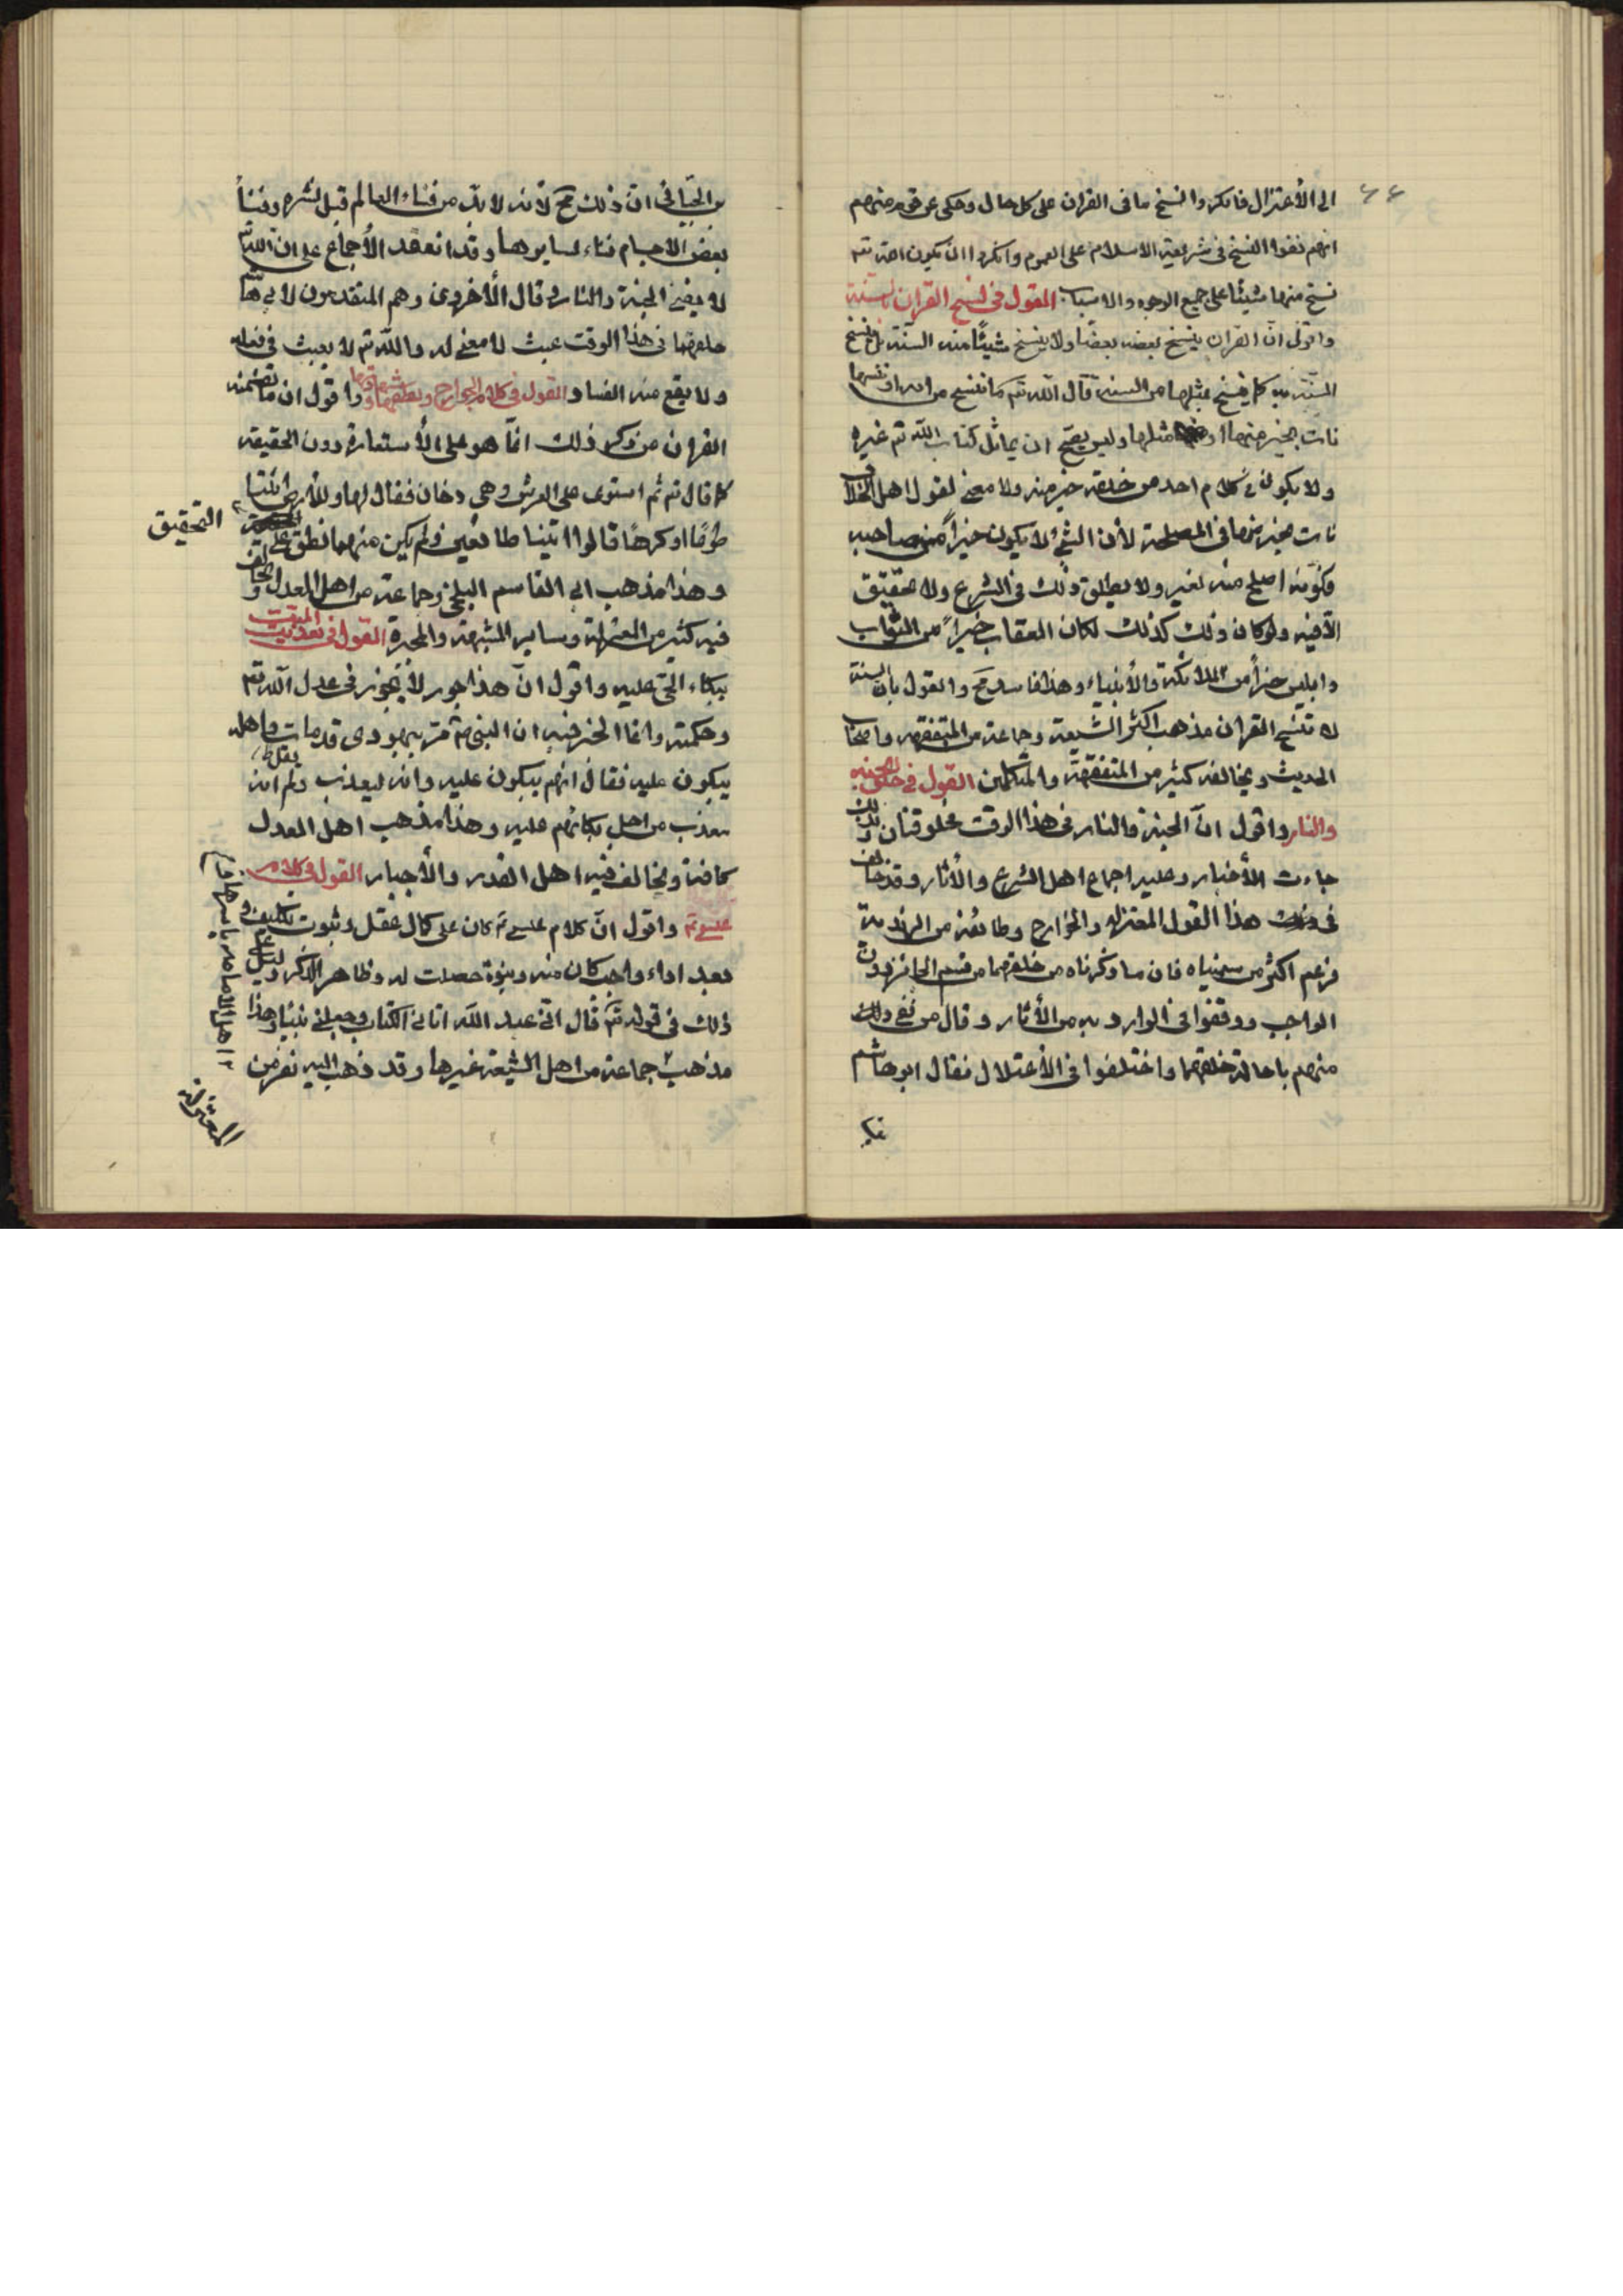 ٤٤
الى الأعتزال فانكروا نسخ ما فى القران على كل حال وحكى عن قوم منهم
انهم نفوا النسخ فى شريعة الاسلام على العموم وانكروا ان يكون الله تعه
نسخ منها شيئا على جميع الوجوه والاسباب القول فى نسخ القران بالسنة
واقول ان القران ينسخ بعضه بعضا ولا ينسخ شيئا منه السنة بل تنسخ
السنة به كما ينسخ بمثلها من السنة قال الله تعه ما ننسخ من اية او ننسها
نات بخير منها او مثلها وليس يصح ان يماثل كتاب الله تم غيره
ولا يكون فى كلام احد من خلقه خير منه ولا معنى لقول اهل الخلاف
نات بخير منها فى المصلحة لأن الشئ لا يكون خيراً من صاحبه
بكونه اصلح منه لغيره ولا يطلق ذلك فى الشرع ولا تحقيق
الأفيه ولو كان ذلك كذلك لكان العقاب خيراً من الثواب
وابليس خيراً من الملائكة والأنبياء وهذا فاسد مح والقول بان السنة
لا تنسخ القران مذهب اكثر الشيعة وجماعة من المتفقهة واصحاب
الحديث ويخالفه كثير من المتفقهة والمتكلمين القول فى خلق الجنة
والنار واقول ان الجنة والنار فى هذا الوقت مخلوقتان وبذلك
جاءت الأخبار وعليه اجماع اهل الشرع والأثار وقد خالف
فى هذا القول المعتزلة والخوارج وطائفة من الزيدية
فزعم اكثر من سميناه فان ما ذكرناه من خلقهما من قسم الجائز دون
الواجب ووقفوا فى الوارد به من الأثار وقال من نفى ذلك
منهم باحالة خلقهما واختلفوا فى الأعتلال فقال ابو هاشم
بن الجبائى ان ذلك مح لأنه لا بد من فناء العالم قبل نشره وفناء
بعض الاجسام فناء لسايرها وقد انعقد الأجماع على ان الله تم
لا يفنى الجنة والنار وقال الأخرون وهم المتقدمون لابى هاشم
خلقهما فى هذا الوقت عبث لا معنى له والله تم لا يعبث فى فعله
ولا يقع منه الفساد القول فى كلام الجوارح ونطقها وشهادتها واقول ان ما تضمنه
القران من ذكر ذلك انما هو على الأستعارة دون الحقيقة
كما قال تم ثم استوى على العرش وهى دخان فقال لها وللأرض ائتيا
طوعاً او كرهاً قالوا اتينا طائعين ولم يكن منهما نطق على
التحقيق
وهذا مذهب ابى القاسم البلخى وجماعة من اهل العدل ويخالف
فيه كثير من المعتزلة وساير المشبهة والمجبرة القول فى تعذيب الميت
ببكاء الحى عليه واقول ان هذا جور لا يجوز فى عدل الله تم
وحكمته وانما الخبر فيه ان النبى م مر بيهودى قد مات واهله
يبكون عليه فقال انهم يبكون عليه وانه ليعذب ولم يقل انه
معذب من اجل بكائهم عليه وهذا مذهب اهل العدل
كافة ويخالف فيه اهل القدر والأجبار القول فى كلام
عيسى م واقول ان كلام عيسى م كان على كمال عقل وثبوت تكليف و
بعد اداء واجب كان منه ونبوة حصلت له وظاهر الذكر دليل على
ذلك فى قوله تم قال انى عبد الله اتانى الكتاب وجعلنى نبيا وهذا
مذهب جماعة من اهل الشيعة غيرها وقد ذهب اليه نفر من
المعتزلة